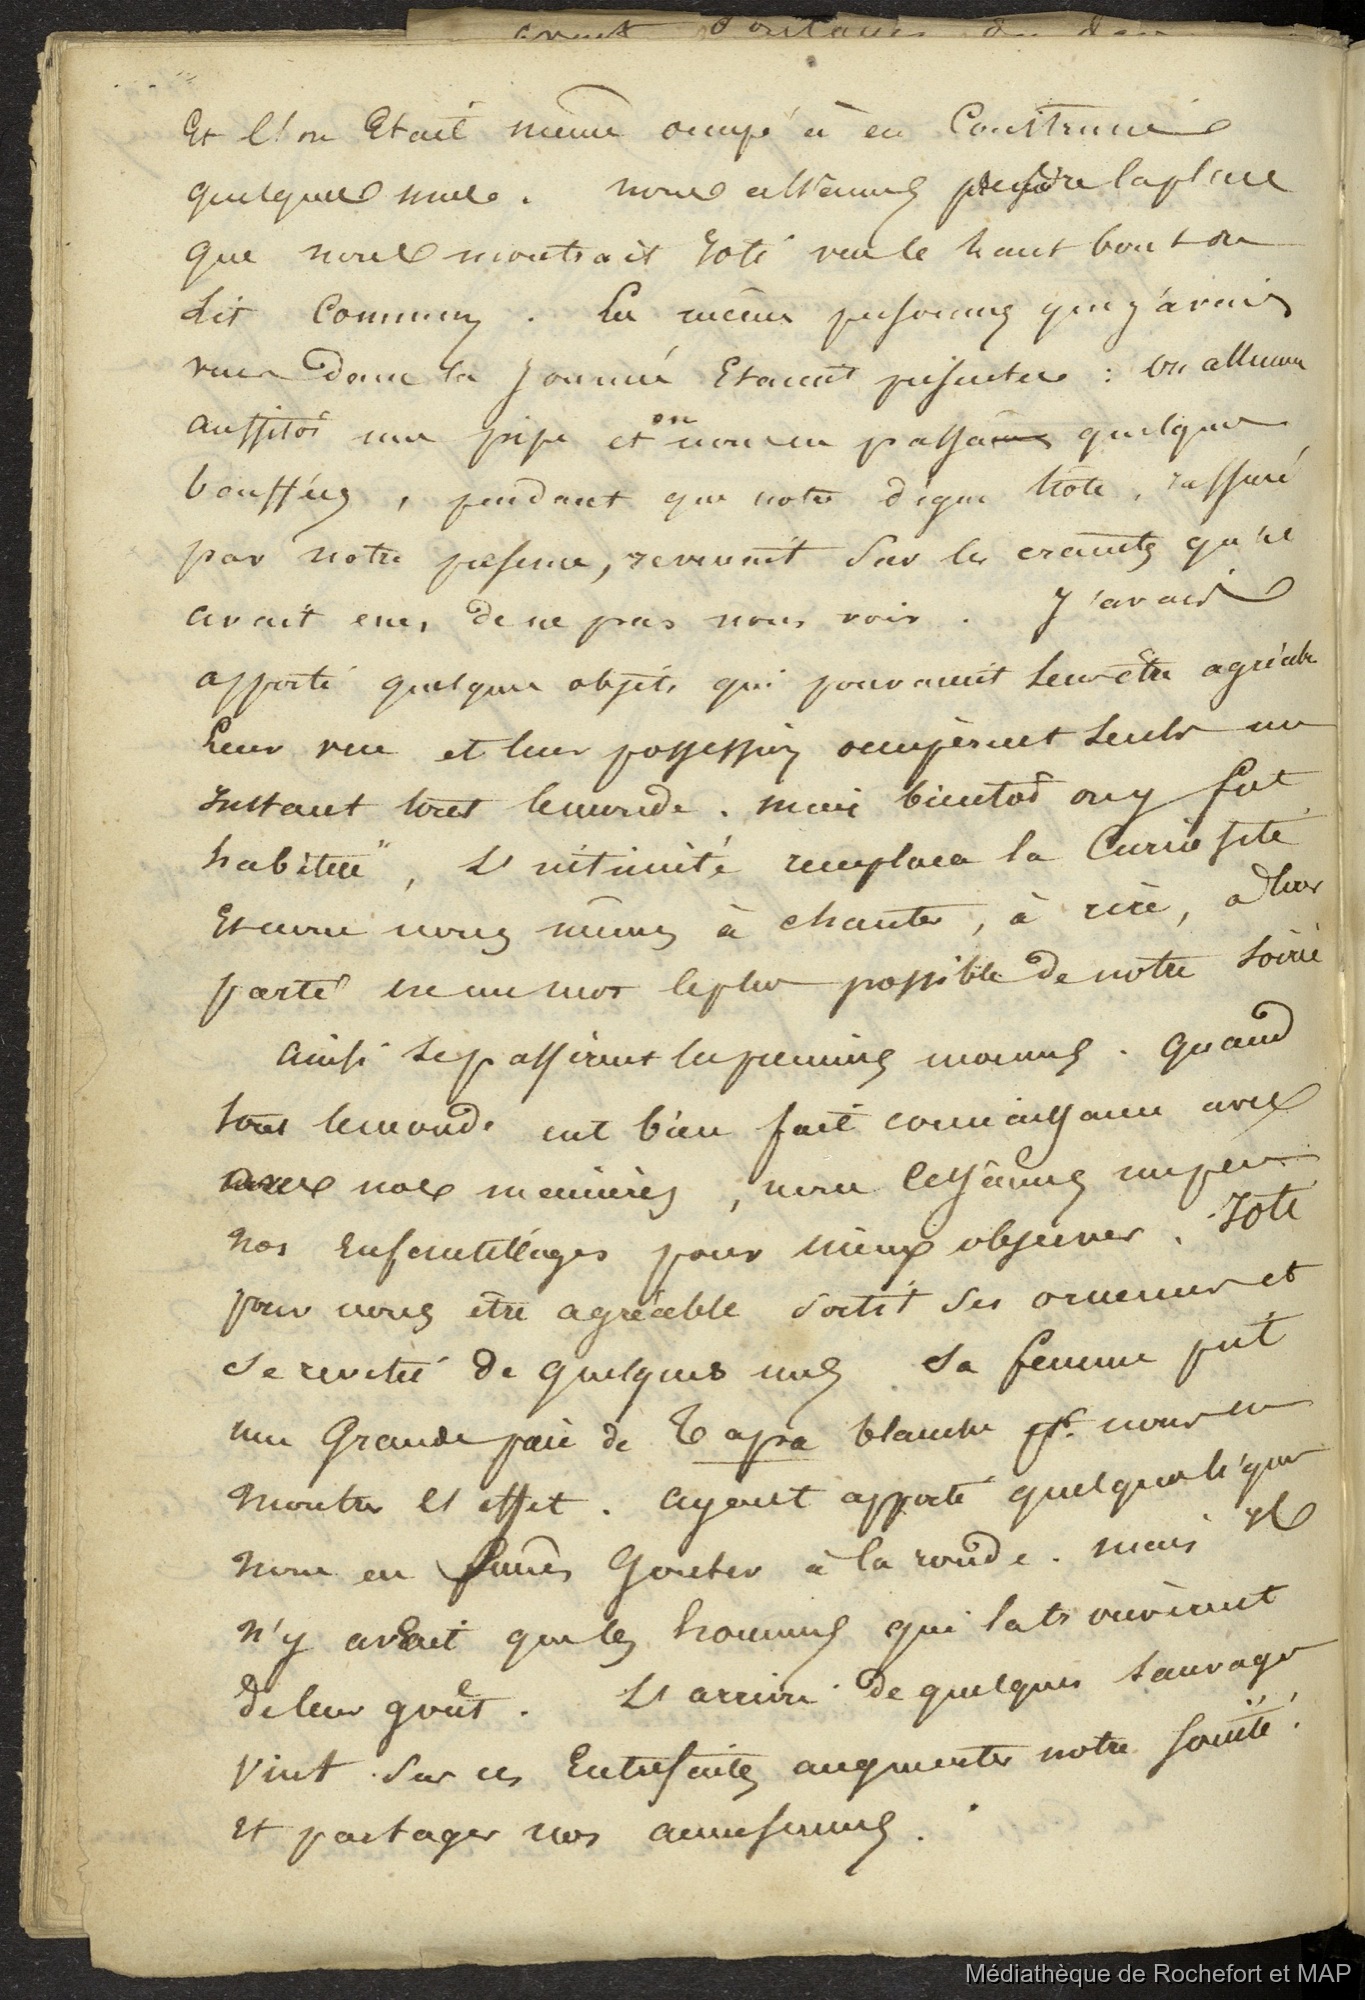 Et l'on Etait même occupé à en Construire
quelques unes. nous allâmes prendre la place
que nous montrait Yoté vers le haut bout du
Lit Commun. Les mêmes personnes que j'avais
vues dans la Journée Etaient présentes : on alluma
aussitôt une pipe et on nous en passa quelques
bouffées, pendant que notre digne hôte, rassuré
par notre présence, revenait sur les craintes qu'il
avait eues de ne pas nous voir. J'avais
apporté quelques objets qui pouvaient leur être agréable
Leur vue et leur possession occupèrent seuls un
Instant tout le monde. mais bientôt on y fut
habitué, L'intimité remplaça la Curiosité
Et nous mêmes à chanter, à rire, à
parté en un mot le plus possible de notre soirée
ainsi se passèrent les premiers moments. Quand
tout le monde eut bien fait connaissance avec
avec nos manières, nous laissâmes un peu
nos Enfantillages pour mieux observer. Yoté
pour nous être agréable sortit ses ornemens et
se revetit de quelques uns. Sa femme prit
une Grande paire de Tapa blanche pr. nous en
montrer l'effet. ayant apporté quelques liqueurs
nous en fimes Gouter à la ronde. mais il
n'y avait que les hommes qui la trouvèrent
de leur goût. L'arrivée de quelques sauvages
vint sur ces Entrefaites augmenter notre société
et partager nos amusemens.
Médiathèque de Rochefort et MAP